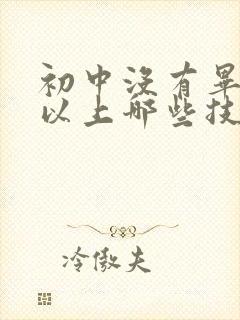 初中没有毕
以上哪些技
冷傲夫